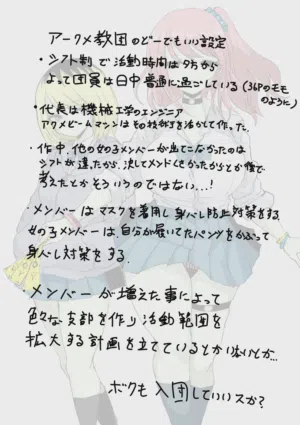 アークメ教団のどーでもいい設定
・シフト制で活動時間は夕方から
よって団員は日中普通に過ごしている(36Pのモモ
のように)
・代表は機械工学のエンジニア
アクメビームマシンはその技術を活かして作った.
・作中、他の女のコメンバーが出てこなかったのは
シフトが違ったから、決してメンドくさかったからとか後で
考えたとかそういうのではない...!
・メンバーはマスクを着用し身バレ防止対策をする
女のコメンバーは自分が履いてたパンツをかぶって
身バレ対策をする.
・メンバーが増えた事によって
色々な支部を作り活動範囲を
拡大する計画を立てているとかいないとか...
ボクも入団していいスか?